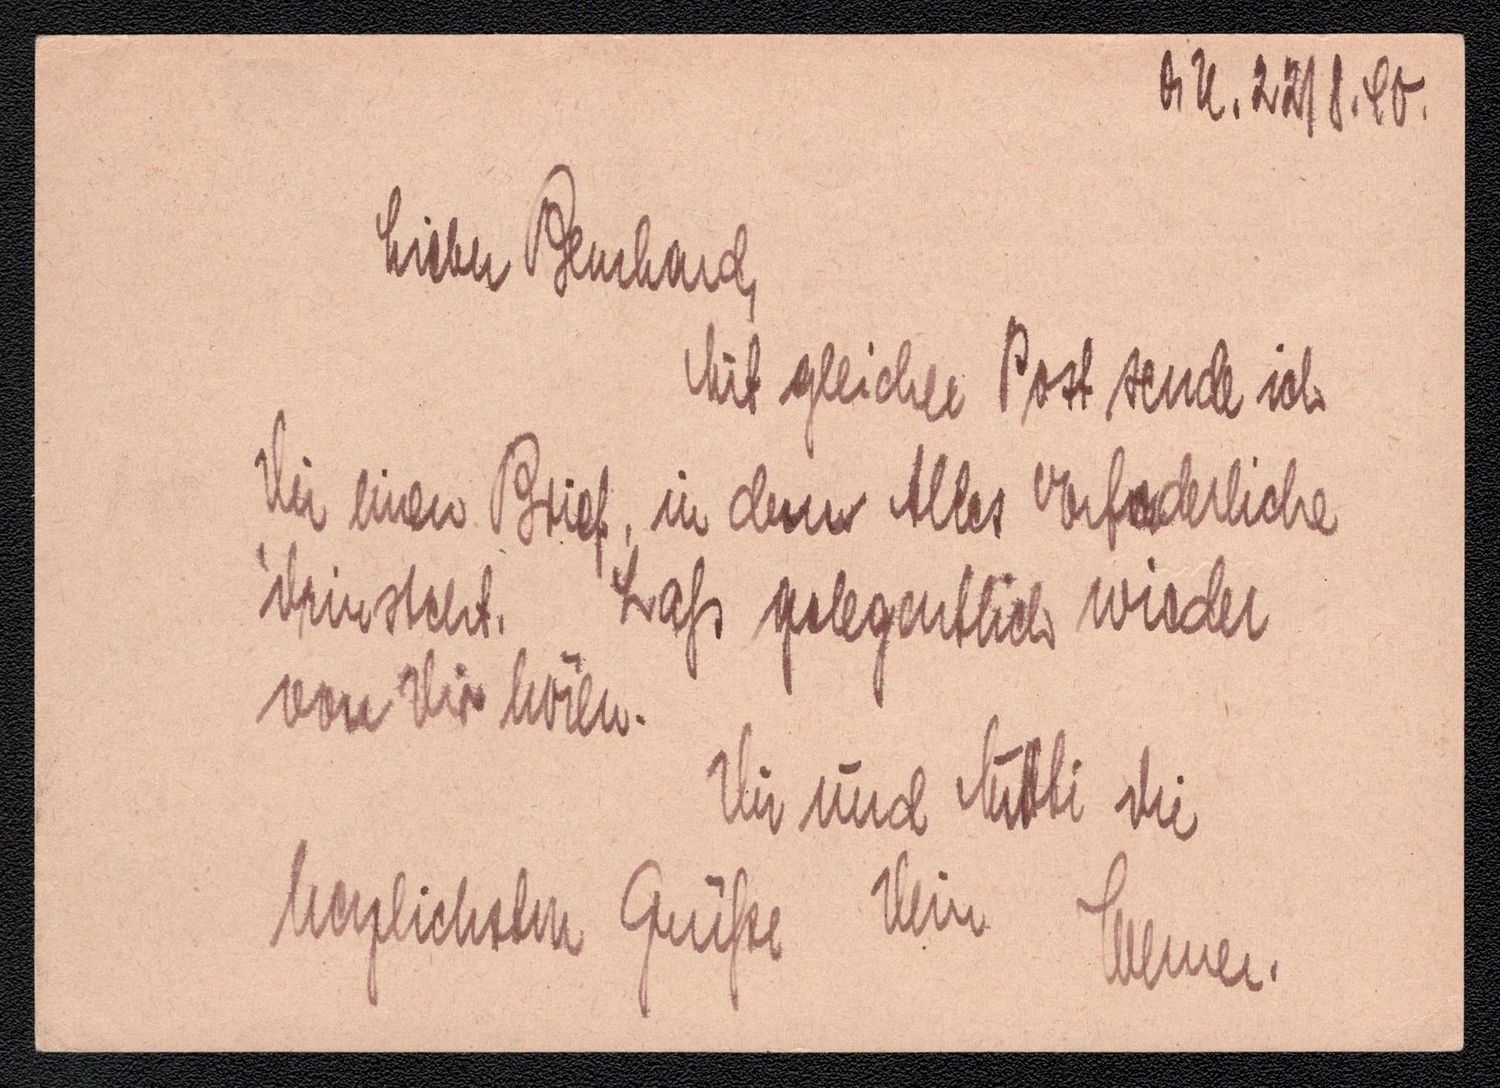 22/8.40.
Lieber Bernhard,
Mit gleicher Post sende ich
Dir einen Brief, in dem Alles erforderliche
drinsteht. Laß gelegentlich wieder
von Dir hören.
Dir und Mutti die
herzlichsten Grüße Dein Werner.